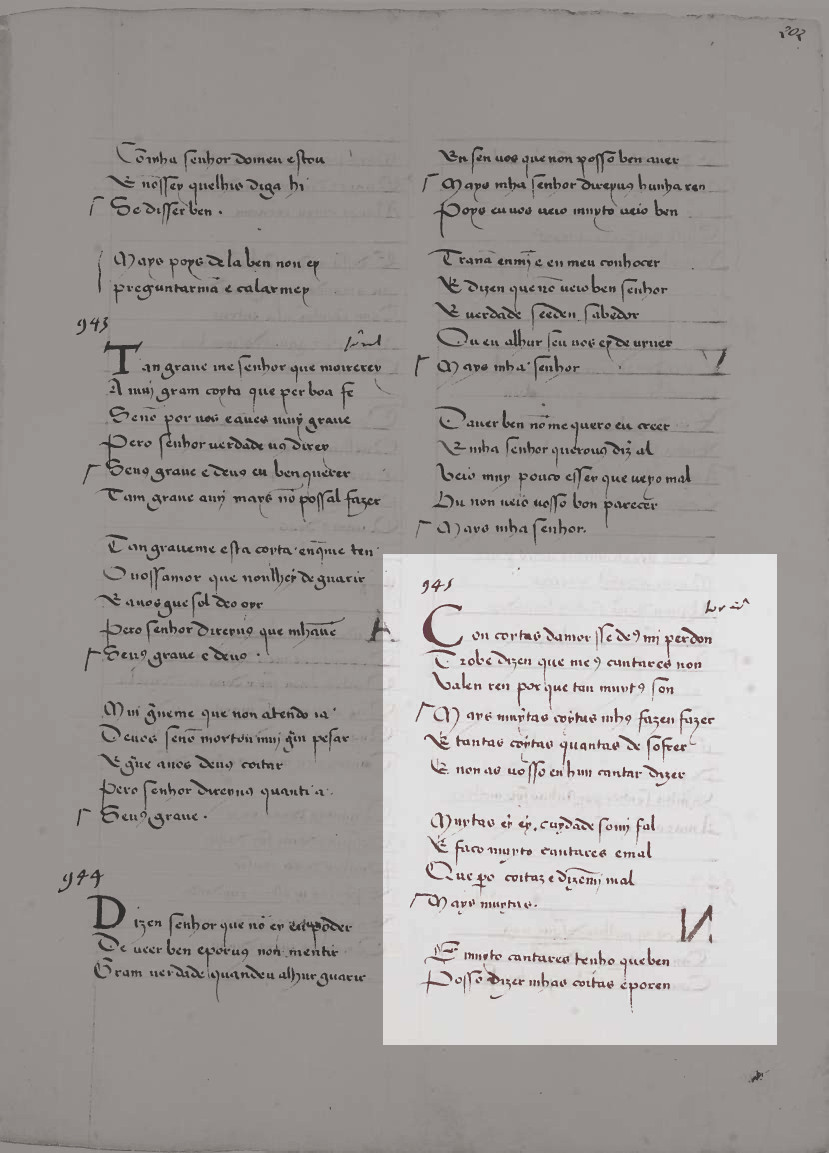 202
Cō mha senhor domeu estou
E nōssey quelhis diga hi
Se disser ben.
Mays poys dela ben non ey
preguntarmā e calarmey
943
Tan graue me senhor que moirerey
A muj gram coyta que per boa fe
Senō por uos eaues muy graue
Pero senhor uerdade uꝯ direy
Seuꝯ graue edeuos eu ben querer
Tam graue amj mays nō possal fazer
Tan graueme esta coyta enq̄me ten
O uossamor que nonlhey de guarir
E auos gue sol deo oyr
Pero senhor direyuꝯ que mhauē
Seuꝯ graue e deuo.
Mui g̃ueme que non atendo ia
Deuos senō morton muj g̃m pesar
E g̃ue auos deuꝯ coitar
Pero senhor direyuꝯ quanti a.
Seuꝯ graue.
944
Dizen senhor que nō ey poder
De ueer ben eporuꝯ non mentir
Gram uerdade quandeu alhur guarir
En sen uos que non posso ben auer
Mays mha senhor direyuꝯ hunha ren
Poys eu uos ueio muyto ueio ben
Trauā enmj̄ e en meu conhocer
E dizen que nō ueio ben senhor
E uerdade seeden sabedor
Ou eu alhur seu uos ey de uyuer
Mays mha senhor
Dauer ben nō me quero eu creer
E mha senhor querouꝯ diz̄ al
Ueio muy pouco essey que ueyo mal
Hu non ueio uosso bon parecer
Mays mha senhor.
945
Con coytas damor sse deꝯ mi perdon
Trobe dizen que meꝯ cantares non
Ualen ren por que tan muytꝯ son
Mays muytas coytas mhꝯ fazen fazer
E tantas coytas quantas de sofrer
E non as uosso en hun cantar dizer
Muytas ey ey. cuydade somj fal
E faco muyto cantares emal
Que ꝑo coitaz e dizem̄j mal
Mays muytas.
E muyto cantares tenho queben
Posso dizer mhas coitas eporen